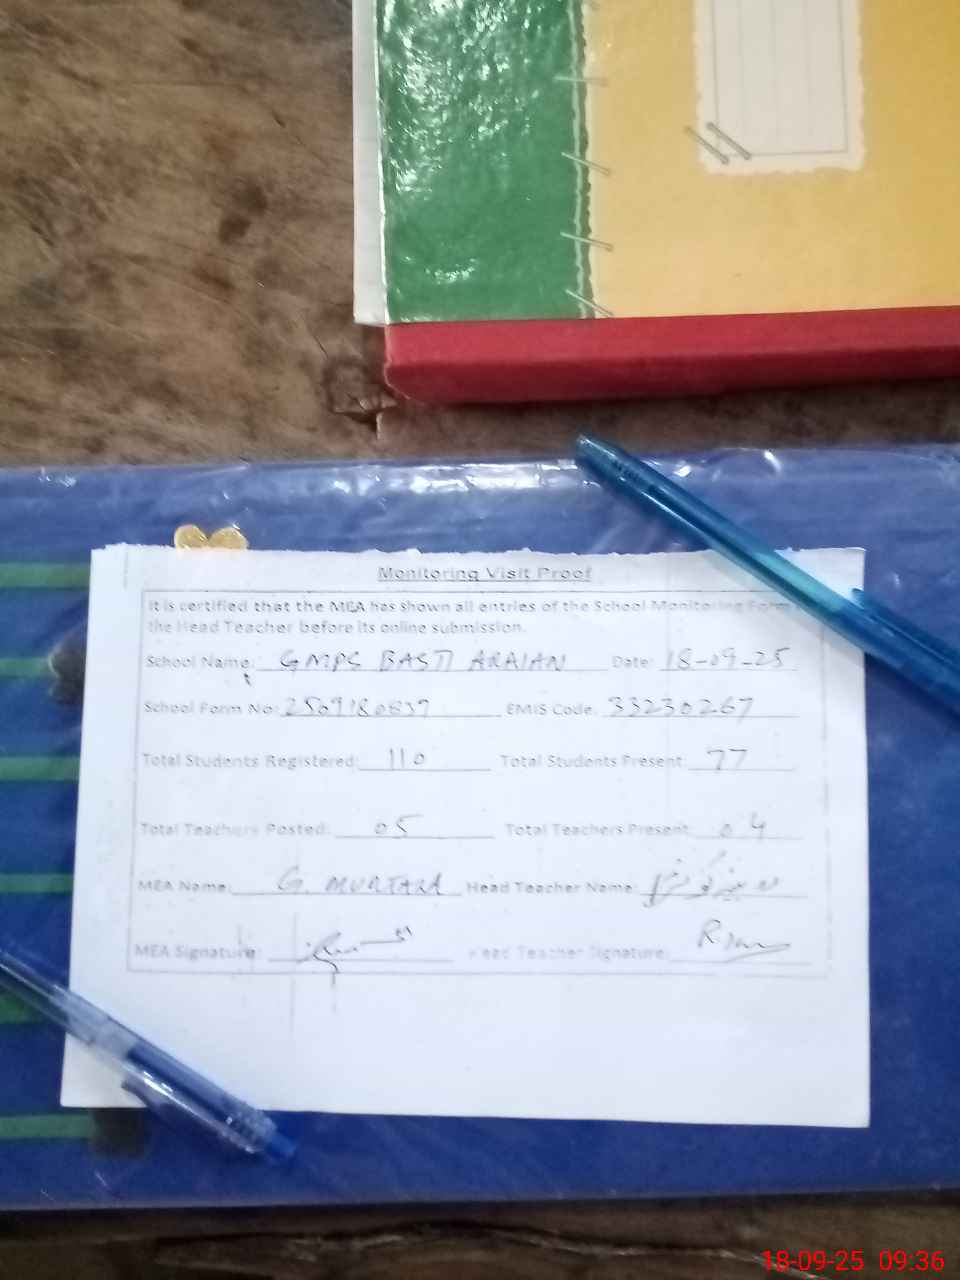 Monitoring Visit Proof
It is certified that the MEA has shown all entries of the School Monitoring Form
the Head Teacher before its online submission.
School Name: GMPS BASTI ARAIAN Date: 18-09-25
School Form No: 2509180837 EMIS Code: 33230267
Total Students Registered: 110 Total Students Present: 77
Total Teachers Posted: 05 Total Teachers Present: 04
MEA Name: G. MURTAZA Head Teacher Name:
MEA Signature: Head Teacher Signature:
18-09-25 09:36